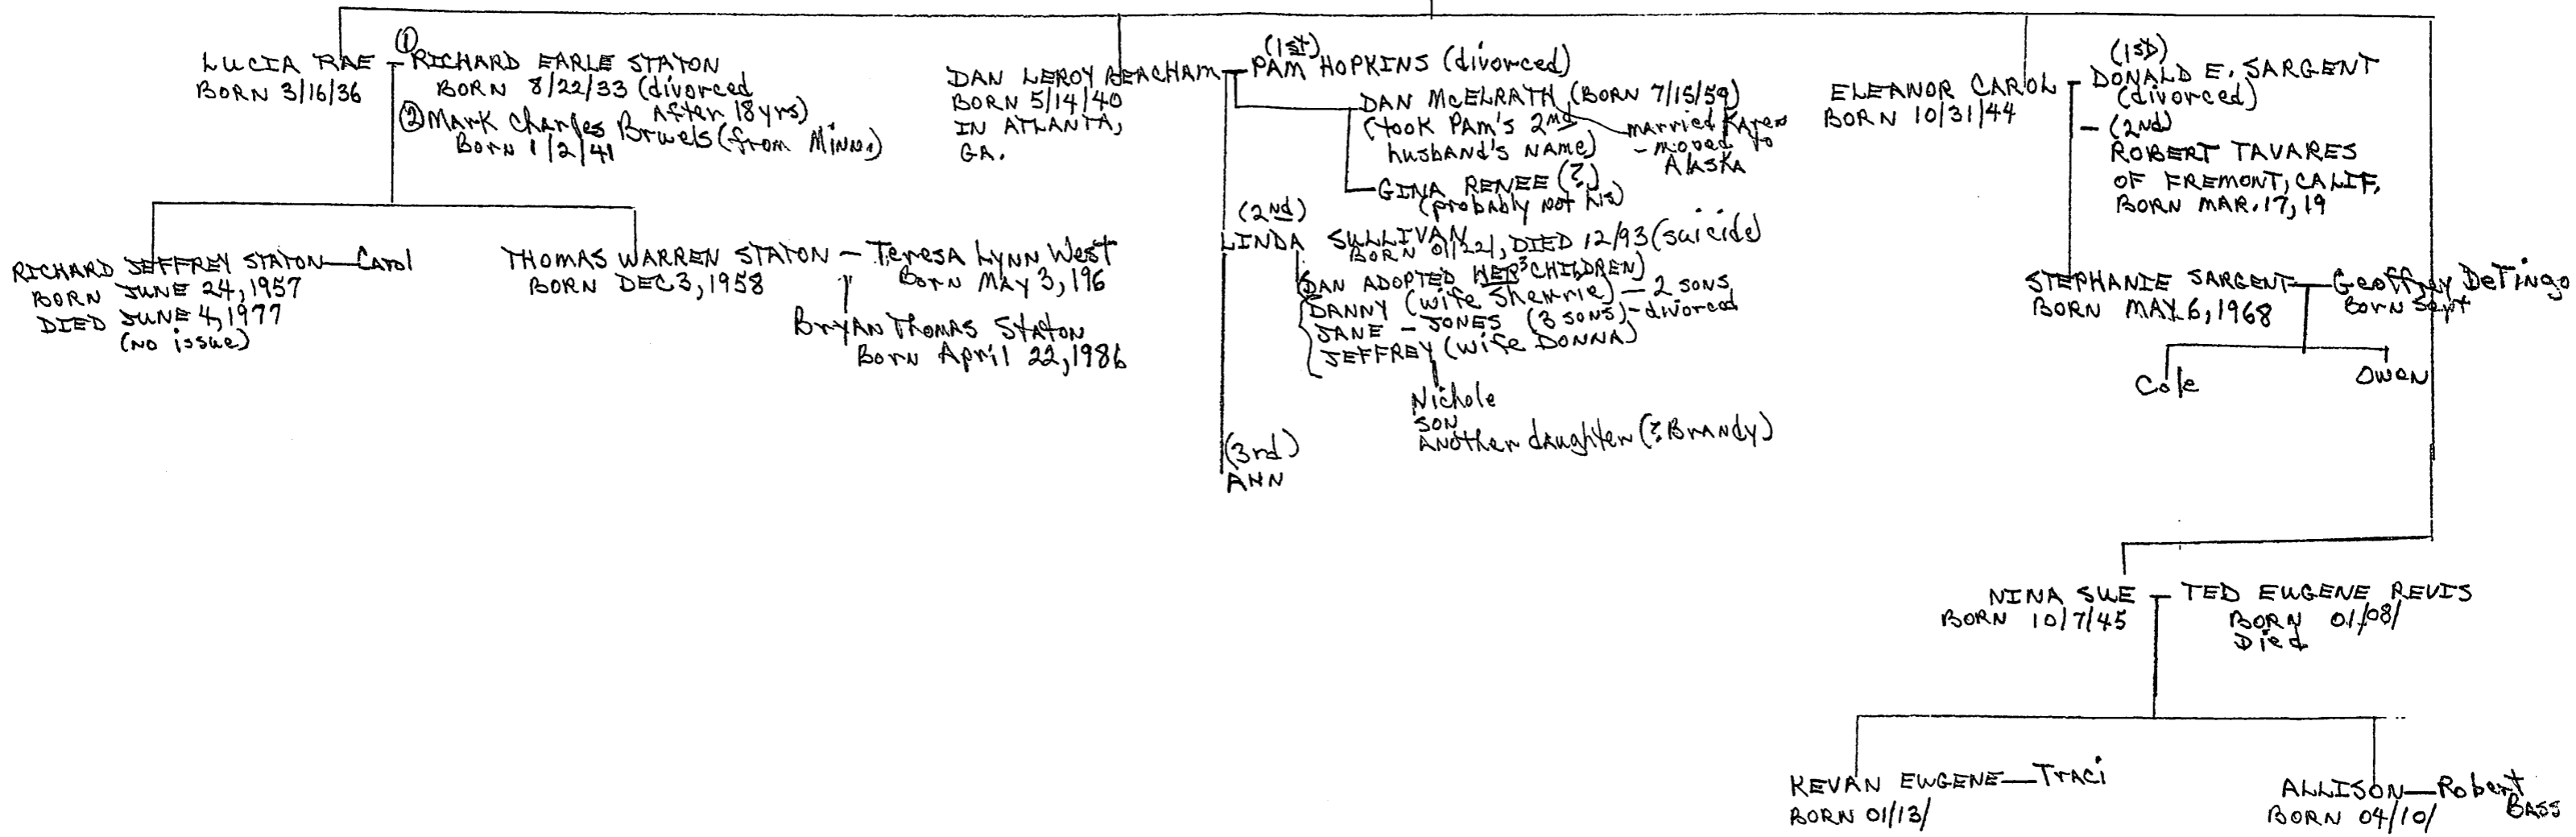 LUCIA RAE
BORN 3/16/36
① RICHARD EARLE STATON
BORN 8/22/33 (divorced
after 18 yrs)
② Mark Charles Bruels (from Minn.)
Born 1/2/41
RICHARD JEFFREY STATON — Carol
BORN JUNE 24, 1957
DIED JUNE 4, 1977
(no issue)
THOMAS WARREN STATON — Teresa Lynn West
BORN DEC 3, 1958
Born May 3, 196
Bryan Thomas Staton
Born April 22, 1986
DAN LEROY BEACHAM
BORN 5/14/40
IN ATLANTA,
GA.
(1st)
PAM HOPKINS (divorced)
DAN McELRATH (BORN 7/15/59)
(took Pam's 2nd
husband's name)
married Karen
- moved to
Alaska
GINA RENEE (?)
(probably not his)
(2nd)
LINDA SULLIVAN
BORN 01/22/, DIED 12/93 (suicide)
DAN ADOPTED HER 3 CHILDREN)
DANNY (wife Sherrie) — 2 sons
JANE - JONES (3 sons) - divorced
JEFFREY (wife DONNA)
Nichole
son
Another daughter (? Brandy)
(3rd)
ANN
ELEANOR CAROL
BORN 10/31/44
(1st)
DONALD E. SARGENT
(divorced)
- (2nd)
ROBERT TAVARES
OF FREMONT, CALIF.
BORN MAR. 17, 19
STEPHANIE SARGENT — Geoffrey DeTingo
BORN MAY 6, 1968
Born Sept
Cole
Owen
NINA SUE — TED EUGENE REVIS
BORN 10/7/45
BORN 01/08/
Died
KEVAN EUGENE — Traci
BORN 01/13/
ALLISON — Robert
Bass
BORN 04/10/